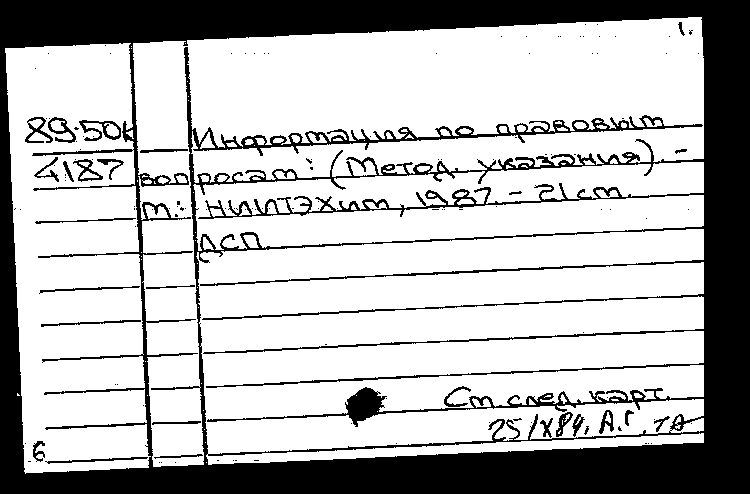 1.
89-50к Информация по правовым
4187 вопросам: (Метод. указания). -
М.: НИИТЭХим, 1987. - 21 см.
ДСП.
См. след. карт.
25/X84. А.Г.
6